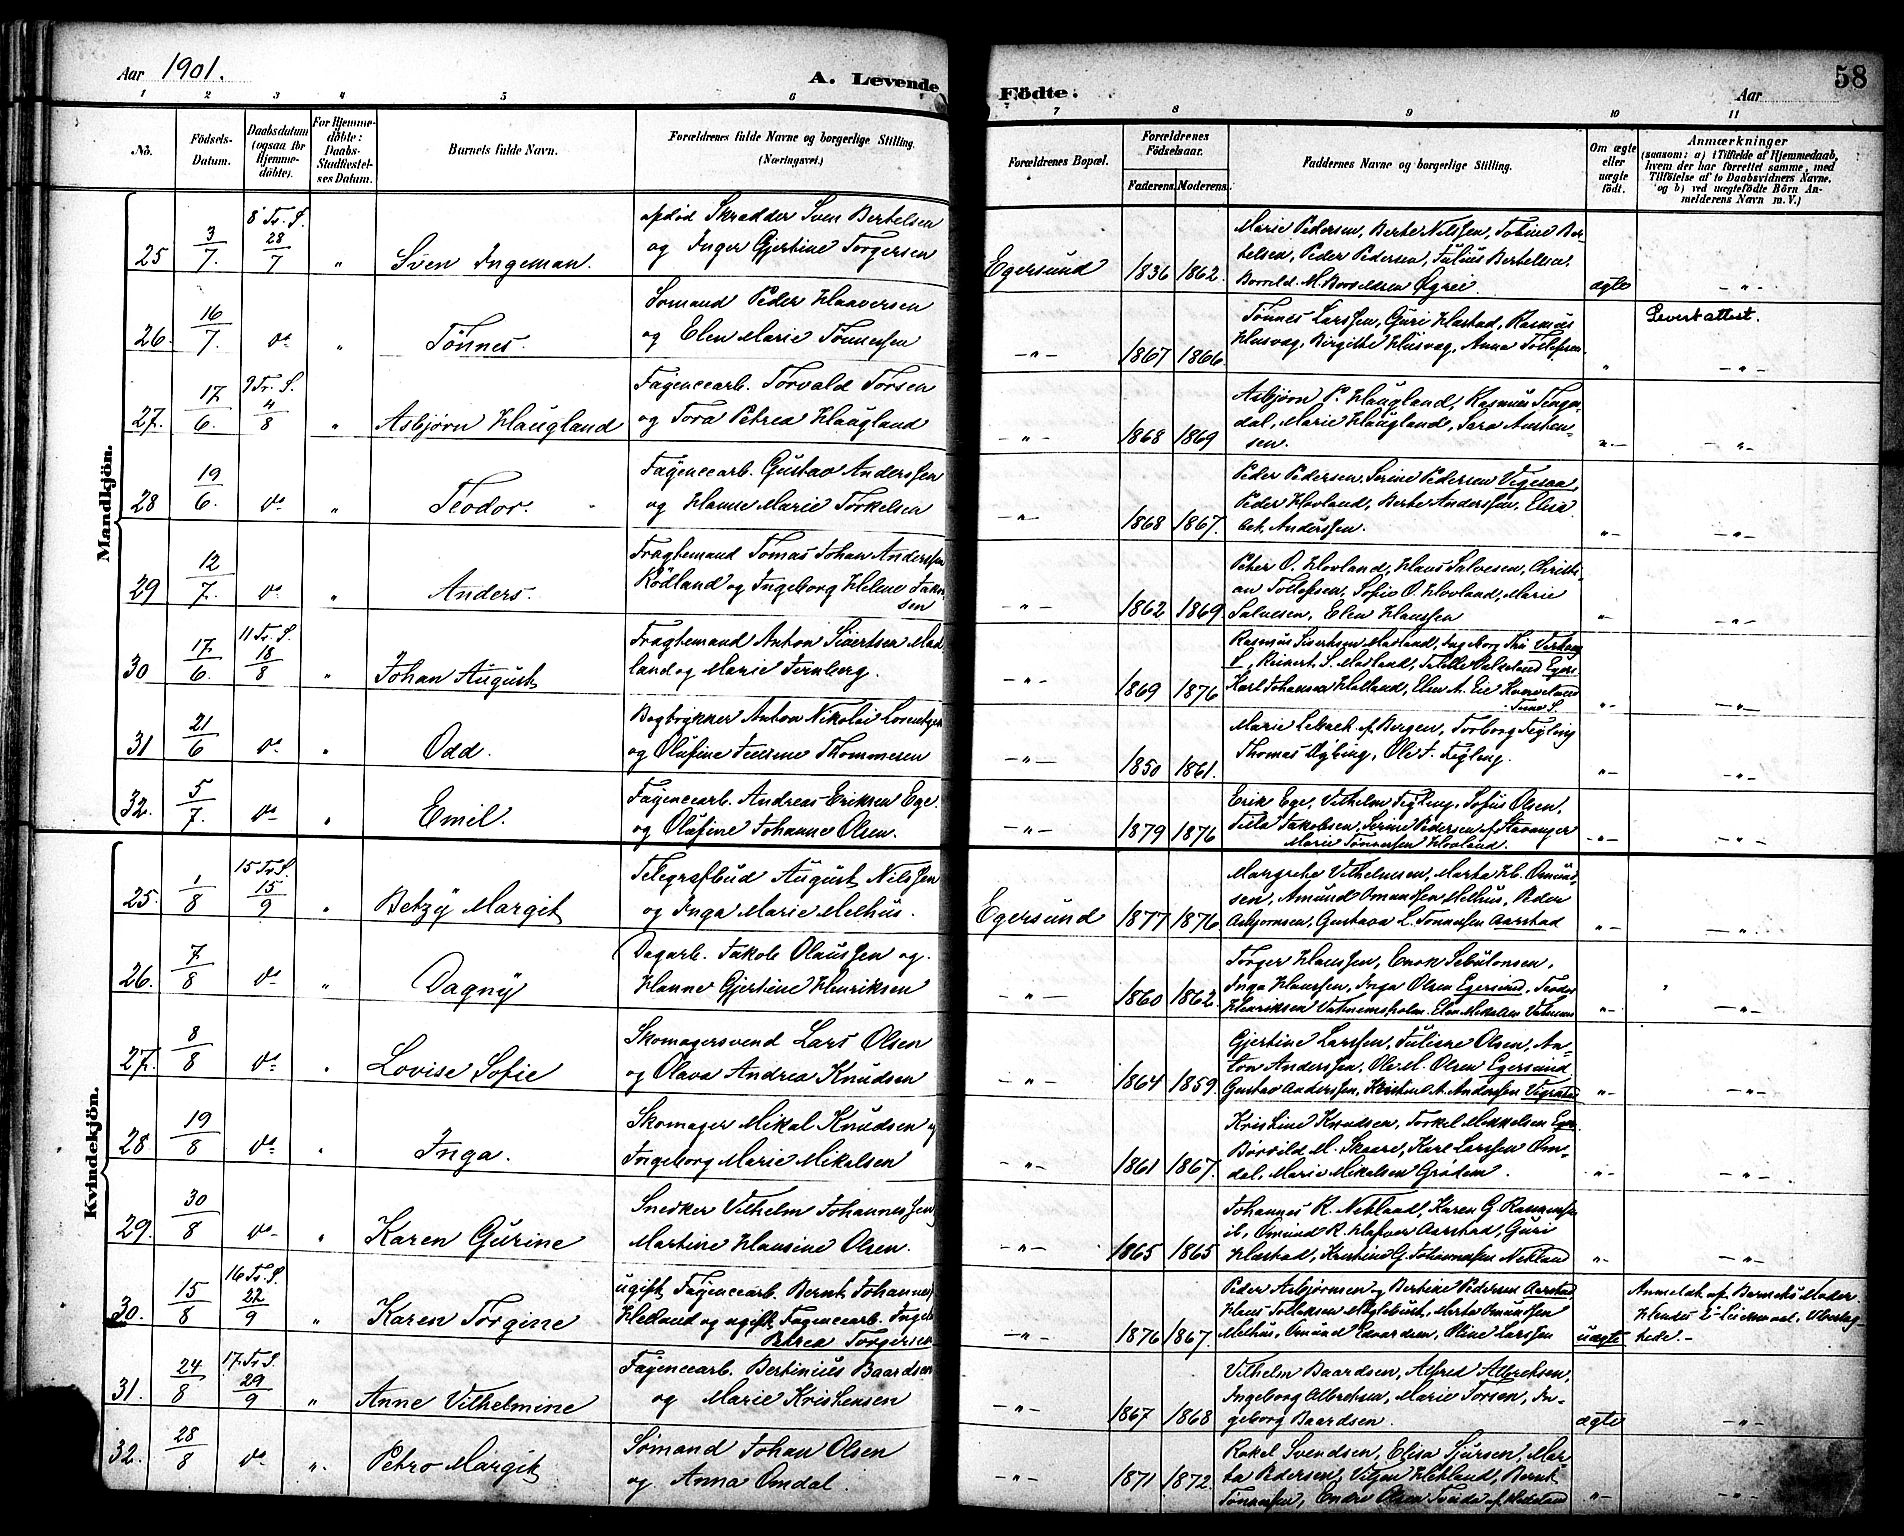 Aar 1901.
A. Levende Födte.
Aar
58
1 2 3 4 5 6 7 8 9 10 11
No.
Födsels-Datum.
Daabsdatum (ogsaa for Hjemme-döbte).
For Hjemme-döbte: Daabs-Stadfæstel-ses Datum.
Barnets fulde Navn.
Forældrenes fulde Navne og borgerlige Stilling. (Næringsvei.)
Forældrenes Bopæl.
Forældrenes Födselsaar.
Faderens. Moderens.
Faddernes Navne og borgerlige Stilling.
Om ægte eller uægte födt.
Anmærkninger
(saasom: a) i Tilfælde af Hjemmedaab,
hvem der har forrettet samme, med
Tilföielse af to Daabsvidners Navne.
og b) ved uægtefödte Börn An-
melderens Navn m. V.)
Mandkjön.
25 3/7. 8 Tr. S. 28/7 " Sven Ingeman.
afdød Skrædder Sven Bertelsen
og Inger Gjertine Torgersen
Egersund 1836 1862.
Marie Pedersen, Berte Nilssen, Tobine Ber-
telsen, Peder Pedersen, Julius Bertelsen,
ægte -"-
26. 16/7. do " Tönnes.
Sömand Peder Haaversen
og Elen Marie Tönnessen
-"- 1867 1866.
Tönnes Larssen, Guri Hæstad, Rasmus
Husvæg, Birgithe Husvæg, Anna Tollefsen
" Levert attest.
-"-
27. 17/6. 9 Tr. S. 4/8 " Asbjørn Haugland
Fayencearb. Torvald Torsen
og Tora Petrea Haugland
-"- 1868 1869
Asbjørn P. Haugland, Rasmus Tenga-
dal, Marie Haugland, Sara Austen-
sen.
"- -"-
28 19/6. do " Teodor.
Fayencearb. Gustav Anderssen
og Hanne Marie Torkelsen
-"- 1868 1867.
Peder Pedersen, Serine Pedersen Vegesaa,
Peder Hovland, Berte Anderssen, Elisa-
bet Anderssen.
"- -"-
29 12/7. do " Anders.
Fragtemand Tomas Johan Anderssen
Rödland og Ingeborg Helene Jakob-
sen
-"- 1862 1869.
Peter O. Hovland, Hans Salvesen, Christi-
an Tollefsen, Sofie O. Hovland, Marie
Salvesen, Elen Hanssen
"- -"-
30 17/6. 11 Tr. S. 18/8 " Johan August
Fragtemand Anton Sivertsen Mad-
land og Marie Fernberg.
-"- 1869 1876
Rasmus Sivertsen Madland, Ingeborg
Reinert S. Madland,
Karl Johansen Hölland, Elen A. Eie
"- -"-
31 21/6 do " Odd.
Bogtrykker Anton Nikolai Lorentzen
og Olufine Thommesen
-"- 1850 1861.
Marie af Bergen, Torborg Tegling
Thomas Nyling, Ole T. Tegling.
"- -"-
32. 5/7. do " Emil.
Fayencearb. Andreas Eriksen Ege.
og Olufine Johanne Olsen.
-"- 1879 1876
Erik Ege, Vilhelm Tegling, Sofus Olsen,
Tilla Jakobsen, Serine Pedersen af Stavanger
Marie Tönnessen Hovland.
"- -"-
Kvindekjön.
25. 1/8 15 Tr. S. 15/9 " Betzy Margit
Telegrafbud August Nilssen
og Inga Marie Melhus.
Egersund 1877 1876
Margrete Vilhelmsen, Marta Hb. Omund-
sen, Amund Omundsen Melhus, Peder
Asbjørnsen, Gustava L. Tönnessen Aarstad
"- -"-
26. 7/8 do " Dagny
Dagarb. Jakob Olaussen og
Hanne Gjertine Henriksen
-"- 1860 1862.
Torger Hanssen, Enok Sebulonsen,
Inga Hanssen, Inga Olsen Egersund, Teodor
Henriksen Vatnemsholm. Elen Mikalsen
"- -"-
27. 8/8 do " Lovise Sofie
Skomagersvend Lars Olsen
og Olava Andrea Knudsen
-"- 1864 1859.
Gjertine Larssen, Juliane Olsen, An-
ton Anderssen, Ole M. Olsen Egersund
Gustav Anderssen, Kristine A. Anderssen
"- -"-
28 19/8 do " Inga.
Skomager Mikal Knudsen og
Ingeborg Marie Mikalsen
-"- 1861 1867.
Kristine Knudsen, Torkel Mikkelsen Eger.
Børild M. Skaare, Karl Larssen Om-
dal, Marie Mikalsen Grödem.
"- -"-
29. 30/8 do " Karen Gurine
Snedker Vilhelm Johannessen
Martine Hansine Olsen.
-"- 1865 1865
Johannes R. Netland, Karen G. Rasmussen
ib, Omund R. Aarstad, Guri
Hæstad, Kristine G. Johannessen Netland
"- -"-
30. 15/8 16 Tr. S. 22/9 " Karen Torgine
ugift Fayencearb. Bernt Johannes
Helland og ugift Fayencearb. Inge
Petrea Torgersen
-"- 1876 1867.
Peder Asbjørnsen og Bertine Pedersen Aarstad
Hans Tollaksen Myglebust, Marta Omundsen
Melhus, Omund Edvardsen, Oline Larssen
uægte Anmeldt af Barnets Moder
Hendes
31. 24/8 17. Tr. S. 29/9 " Anne Vilhelmine
Fayencearb. Bertinius Baardsen
og Marie Kristensen
-"- 1867 1868
Vilhelm Baardsen, Alfred Albretsen,
Ingeborg Albretsen, Marie Torsen, In-
geborg Baardsen.
ægte -"-
32. 28/8 do ". Petra Margit
Sömand Johan Olsen
og Anna Omdal.
-"- 1871 1872.
Rakel Svendsen, Elisa Sjursen, Mar-
ta Pedersen, Hetland, Bernt
Tönnessen, Endre Olsen
"- -"-